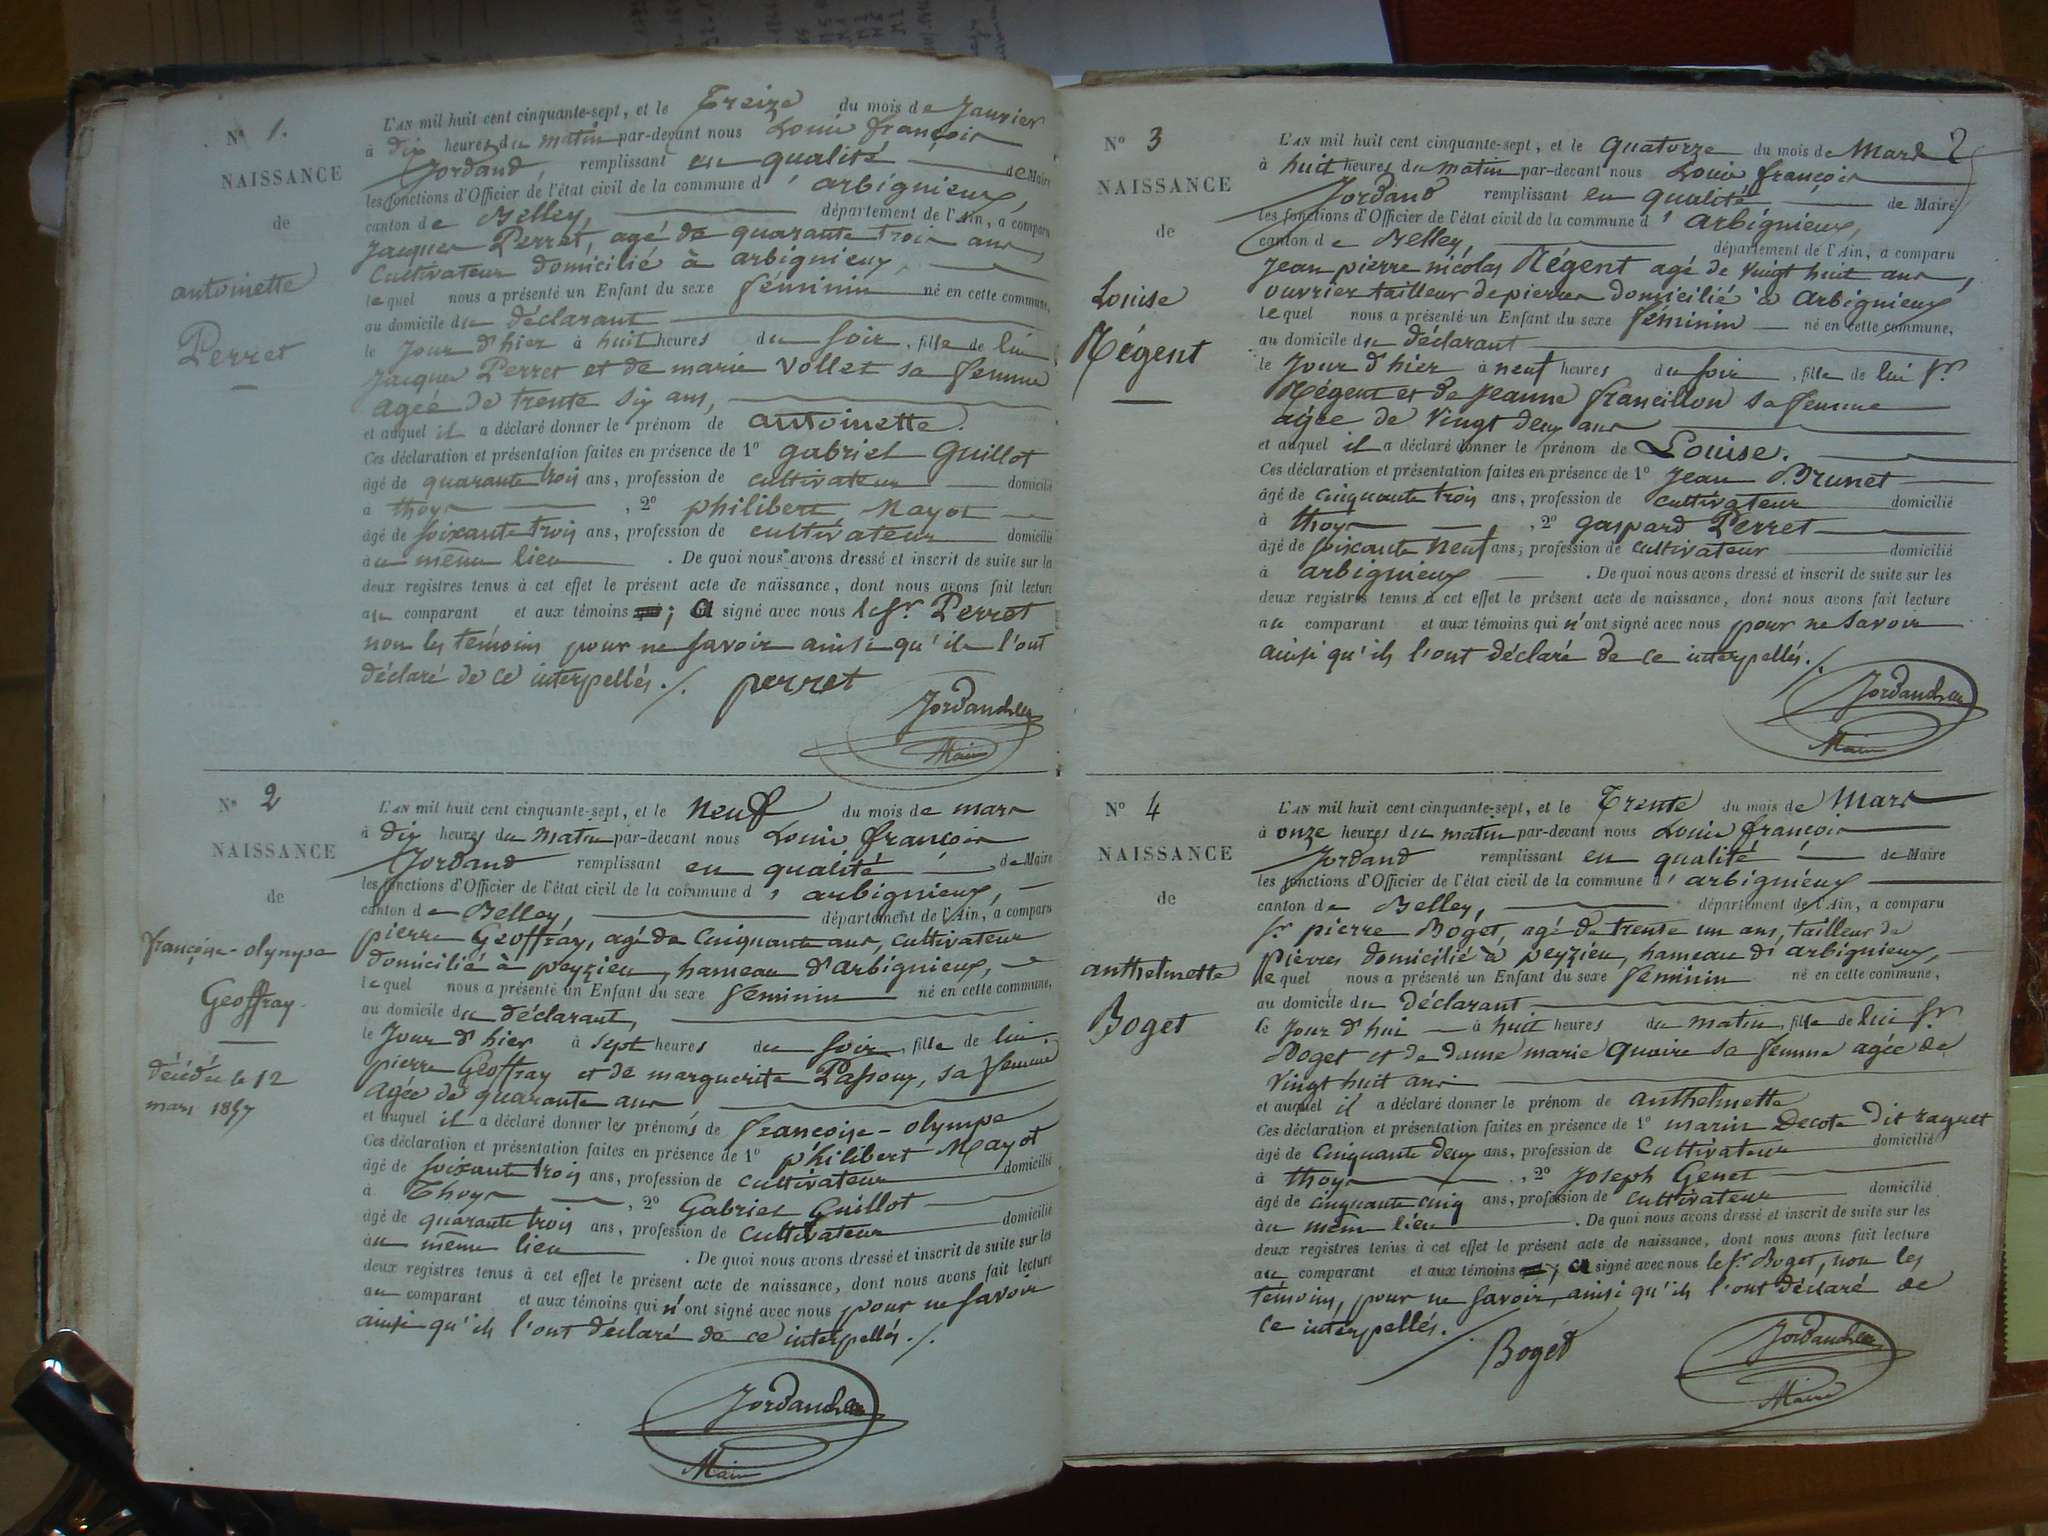 N° 1.
NAISSANCE
de
antoinette
Perret
L'AN mil huit cent cinquante-sept, et le Treize du mois de Janvier
à dix heures du matin par-devant nous Louis françois
Jordand, remplissant en qualité de Maire
les fonctions d'Officier de l'état civil de la commune d'arbignieux,
canton de Belley, département de l'Ain, a comparu
Jacques Perret, agé de quarante trois ans,
Cultivateur domicilié à arbignieux,
lequel nous a présenté un Enfant du sexe féminin né en cette commune,
au domicile du déclarant
le Jour d'hier à huit heures du soir, fille de lui
Jacques Perret et de marie Vollet sa femme
agée de trente six ans,
et auquel il a déclaré donner le prénom de antoinette.
Ces déclaration et présentation faites en présence de 1° gabriel Guillot
âgé de quarante trois ans, profession de cultivateur domicilié
à thoys, 2° philibert Mayot
âgé de soixante trois ans, profession de cultivateur domicilié
au même lieu. De quoi nous avons dressé et inscrit de suite sur les
deux registres tenus à cet effet le présent acte de naissance, dont nous avons fait lecture
au comparant et aux témoins ; a signé avec nous le Sr. Perret
non les témoins pour ne savoir ainsi qu'ils l'ont
déclaré de ce interpellés ./. perret
Jordand
Maire
N° 2
NAISSANCE
de
françoise-olympe
Geoffray.
décédée le 12
mars 1857
L'AN mil huit cent cinquante-sept, et le neuf du mois de mars
à dix heures du matin par-devant nous Louis françois
Jordand remplissant en qualité de Maire
les fonctions d'Officier de l'état civil de la commune d'arbignieux,
canton de Belley, département de l'Ain, a comparu
pierre Geoffray, agé de Cinquante ans, cultivateur
domicilié à peyzieu, hameau d'arbignieux,
lequel nous a présenté un Enfant du sexe féminin né en cette commune,
au domicile du déclarant,
le Jour d'hier à sept heures du soir, fille de lui
pierre Geoffray et de marguerite Passoux, sa femme
agée de quarante ans
et auquel il a déclaré donner les prénoms de françoise-olympe
Ces déclaration et présentation faites en présence de 1° philibert Mayot
âgé de soixante trois ans, profession de cultivateur domicilié
à Thoys, 2° Gabriel Guillot
âgé de quarante trois ans, profession de cultivateur domicilié
au même lieu. De quoi nous avons dressé et inscrit de suite sur les
deux registres tenus à cet effet le présent acte de naissance, dont nous avons fait lecture
au comparant et aux témoins qui n'ont signé avec nous pour ne savoir
ainsi qu'ils l'ont déclaré de ce interpellés ./.
Jordand
Maire
2
N° 3
NAISSANCE
de
Louise
Régent
L'AN mil huit cent cinquante-sept, et le quatorze du mois de Mars
à huit heures du matin par-devant nous Louis françois
Jordand remplissant en qualité de Maire
les fonctions d'Officier de l'état civil de la commune d'arbignieux,
canton de Belley, département de l'Ain, a comparu
Jean pierre nicolas Régent agé de vingt huit ans,
ouvrier tailleur de pierres domicilié à arbignieux
lequel nous a présenté un Enfant du sexe féminin né en cette commune,
au domicile du déclarant
le Jour d'hier à neuf heures du soir, fille de lui Sr.
Régent et de Jeanne francillon sa femme
agée de Vingt deux ans
et auquel il a déclaré donner le prénom de Louise.
Ces déclaration et présentation faites en présence de 1° Jean Brunet
âgé de cinquante trois ans, profession de cultivateur domicilié
à thoys, 2° gaspard Perret
âgé de soixante neuf ans, profession de cultivateur domicilié
à arbignieux. De quoi nous avons dressé et inscrit de suite sur les
deux registres tenus à cet effet le présent acte de naissance, dont nous avons fait lecture
au comparant et aux témoins qui n'ont signé avec nous pour ne savoir
ainsi qu'ils l'ont déclaré de ce interpellés ./.
Jordand
Maire
N° 4
NAISSANCE
de
anthelmette
Boget
L'AN mil huit cent cinquante-sept, et le Trente du mois de Mars
à onze heures du matin par-devant nous Louis françois
Jordand remplissant en qualité de Maire
les fonctions d'Officier de l'état civil de la commune d'arbignieux
canton de Belley, département de l'Ain, a comparu
Sr. pierre Boget, agé de trente un ans, tailleur de
pierres domicilié à peyzieu, hameau d'arbignieux,
lequel nous a présenté un Enfant du sexe féminin né en cette commune,
au domicile du déclarant
le Jour d'hui à huit heures du matin, fille de lui Sr.
Boget et de dame marie Quoire sa femme agée de
Vingt huit ans
et auquel il a déclaré donner le prénom de anthelmette
Ces déclaration et présentation faites en présence de 1° marin Decote dit raquet
âgé de Cinquante deux ans, profession de Cultivateur domicilié
à thoys, 2° Joseph Genet
âgé de cinquante cinq ans, profession de cultivateur domicilié
au même lieu. De quoi nous avons dressé et inscrit de suite sur les
deux registres tenus à cet effet le présent acte de naissance, dont nous avons fait lecture
au comparant et aux témoins ; a signé avec nous le Sr. Boget, non les
témoins, pour ne savoir, ainsi qu'ils l'ont déclaré de
ce interpellés. ./. Boget
Jordand
Maire